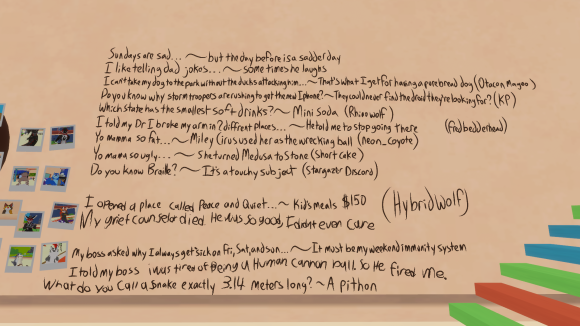 Sundays are sad... ~ but the day before is a sadder day
I like telling dad jokes... ~ some times he laughs
I can't take my dog to the park without the ducks attacking him... ~ That's what I get for having a pure bread dog (Otacon Magoo)
Do you know why storm troopers are rushing to get the new Iphone? ~ They could never find the droid they're looking for? (KP)
Which state has the smallest soft drinks? ~ Mini soda (Rhinowolf)
I told my Dr I broke my arm in 2 different places... ~ He told me to stop going there (Fredbedderhead)
Yo mamma so fat... ~ Miley Cirus used her as the wrecking ball (Neon_Coyote)
Yo mama so ugly... ~ She turned Medusa to Stone (Short Cake)
Do you know Braille? ~ It's a touchy subject (Stargazer Discord)
I opened a place called Peace and Quiet... ~ Kids meals $150 (HybridWolf)
My grief counselor died. He was so good, I didnt even care
My boss asked why I always get sick on Fri, Sat, and sun... ~ It must be my weekend immunity system
I told my boss i was tired of Being a Human Cannon ball. So He fired me.
What do you call a snake exactly 3.14 meters long? ~ A pithon